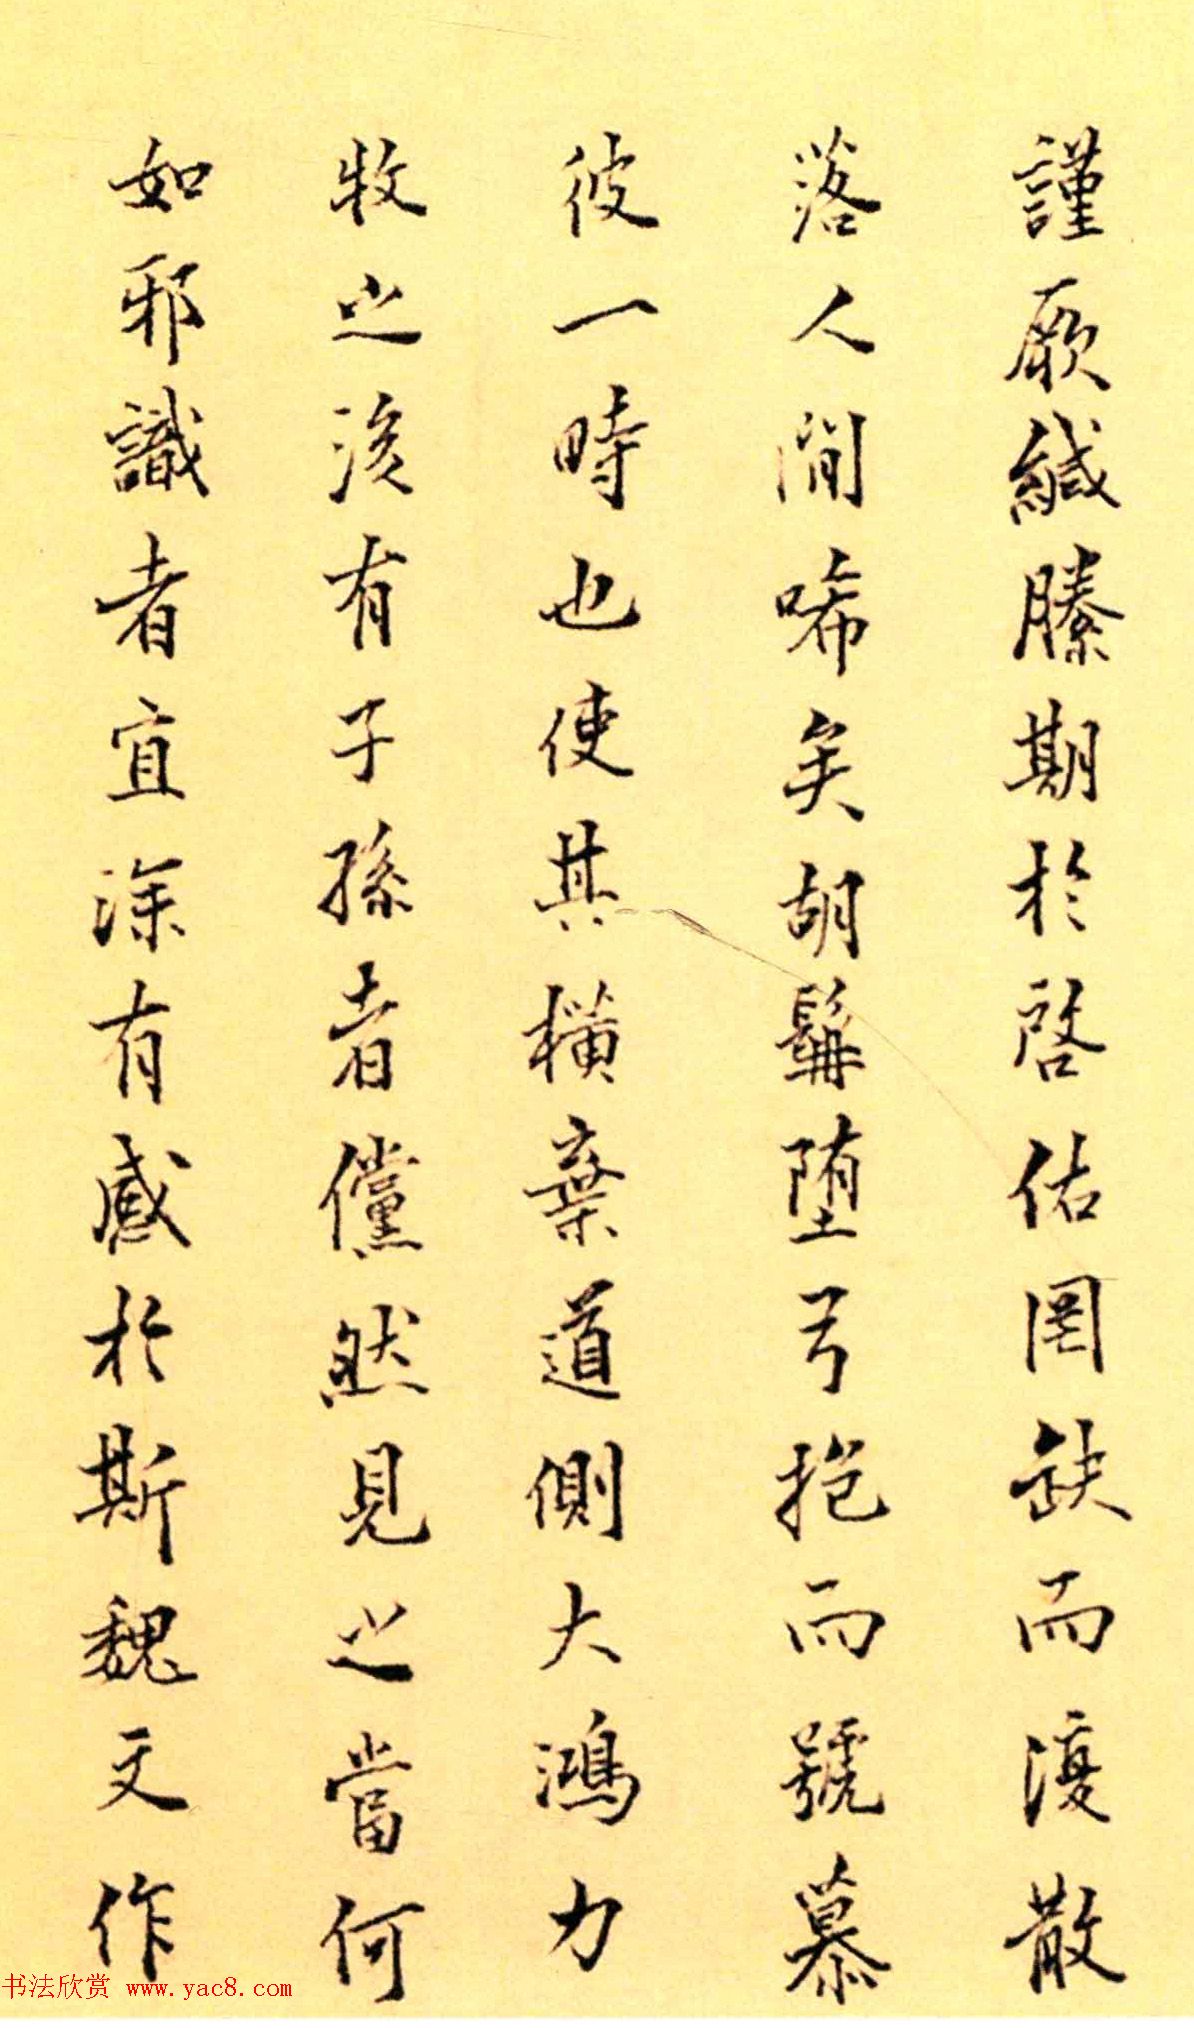 謹厥緘縢期於啓佑罔缺而復散
落人間唏矣胡髯堕弓抱而號慕
彼一時也使其橫棄道側大鴻力
牧之後有子孫者儻然見之當何
如邪識者宜深有感於斯魏文作
书法欣赏 www.yac8.com